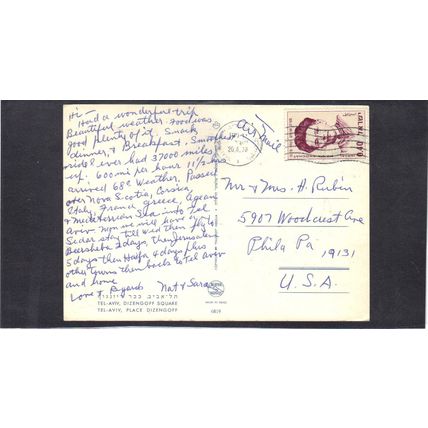 Hi -
Had a wonderful trip
Beautiful weather. Food was
good plenty of it. Snack
dinner, & Breakfast, Smoothest
ride I ever had 37000 miles
up. 600 mi per hour 11 1/2 hrs
arrived 68° Weather, Passed
over Nova Scotia, Corsica,
Italy, France, greece, Agean
& Mediterrian Sea into Tel
Aviv. now we will have
Seder stay till Wed then fly to
Beersheba 2 days, then Jerusalem
5 days then Haifa 4 days plus
other towns then back to Tel aviv
and home
Love & Regards Nat & Sara
תל-אביב, ככר דיזנגוף
TEL-AVIV, DIZENGOFF SQUARE
TEL-AVIV, PLACE DIZENGOFF
6819
Air Mail
0.40
ISRAEL
Mr & Mrs. H. Rubin
5907 Woodcrest Ave
Phila Pa 19131
U.S.A.